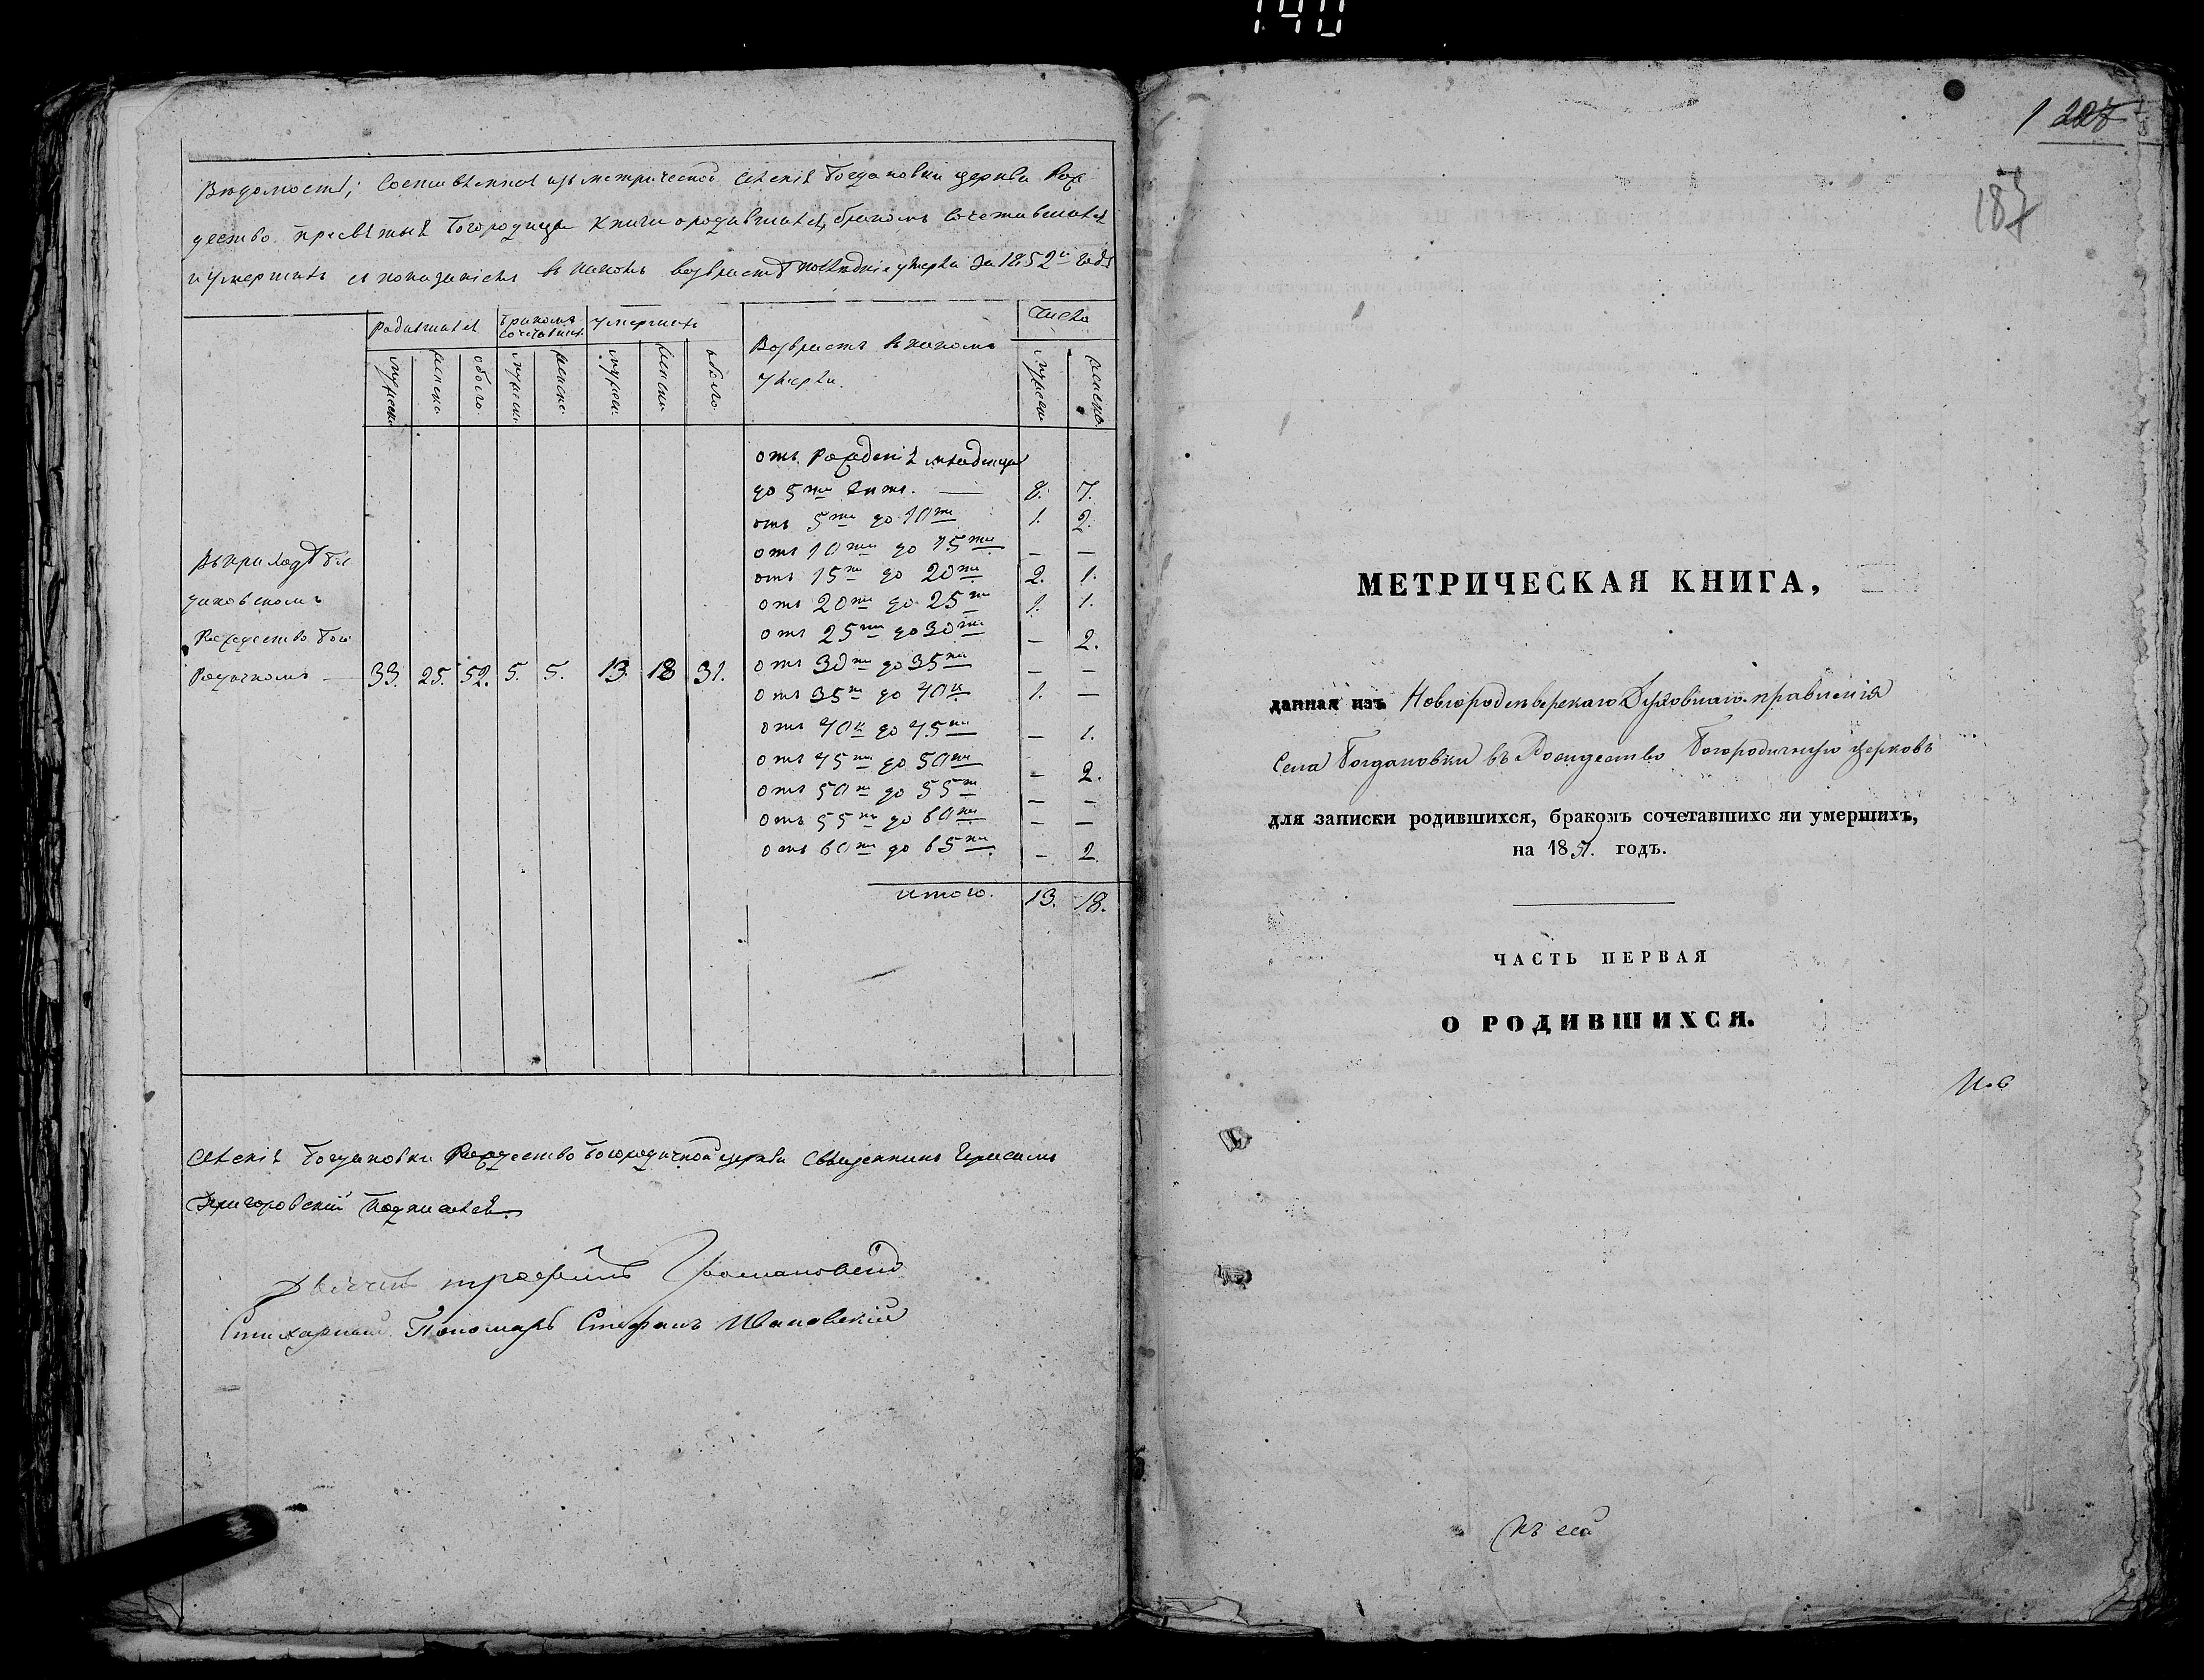 140
Вѣдомость, составленная изъ метрической селенія Богдановки церкви Рож
дество пресвятыя Богородицы книги о родившихся, бракомъ сочетавшихся
и умершихъ съ показаніемъ въ какомъ возрастѣ послѣдніе умерли за 1852й годъ
родившихся
бракомъ сочетавших.
умершихъ
Возрастъ въ какомъ умерли.
число
мужеск.
женск.
обоего.
мужеск.
женск.
мужеск.
женск.
обоего.
мужеск.
женск.
отъ рожденія младенца
до 5ти лѣтъ. — 8. 7.
отъ 5ти до 10ти 1. 2.
отъ 10ти до 15ти — —
отъ 15ти до 20ти 2. 1.
отъ 20ти до 25ти 1. 1.
отъ 25ти до 30ти — 2.
отъ 30ти до 35ти — —
отъ 35ти до 40к 1. —
отъ 40к до 45ти — 1.
отъ 45ти до 50ти — 2.
отъ 50ти до 55ти — —
отъ 55ти до 60ти — —
отъ 60ти до 65ти — 2
итого. 13. 18.
Въ приходѣ Бог
дановскомъ
Рождество Бого
родичномъ — 33. 25. 52. 5. 5. 13. 18 31.
Селенія Богдановки Рождество Богородичной церкви Священникъ Герасимъ
Григоровскій подписался.
Дьячекъ
Стихарный Пономарь Стефанъ
1 227
187
МЕТРИЧЕСКАЯ КНИГА,
данная изъ Новгородсѣверскаго Духовнаго правленія
Села Богдановки въ Рождество Богородичную церковь
для записки родившихся, бракомъ сочетавшихс яи умершихъ,
на 1851. годъ.
ЧАСТЬ ПЕРВАЯ
О РОДИВШИХСЯ.
къ сей